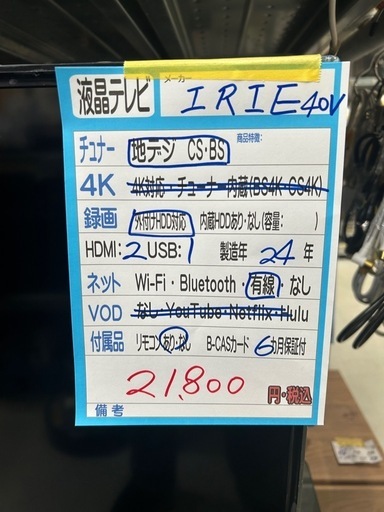 液晶テレビ
メーカー
IRIE 40V
チュナー 地デジ CS・BS
商品特徴:
4K 4K対応・チューナー内蔵(BS4K・CS4K)
録画 外付けHDD対応 内蔵HDDあり・なし(容量: )
HDMI:2 USB:1 製造年 24年
ネット Wi-Fi・Bluetooth・有線・なし
VOD なし・YouTube・Netflix・Hulu
付属品 リモコンあり・なし B-CASカード 6カ月保証付
21,800 円・税込
備考